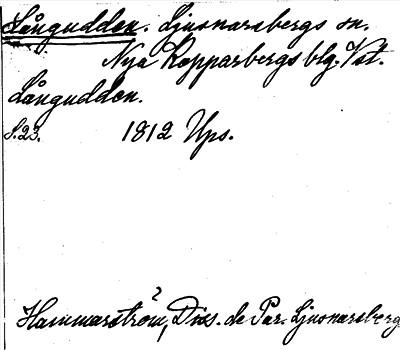 Långudden. Ljusnarsbergs sn.
Nya Kopparbergs blg. Vst.
Långudden.
S. 23. 1812 Ups.
Hammarström, Diss. de Par. Ljusnarsberg